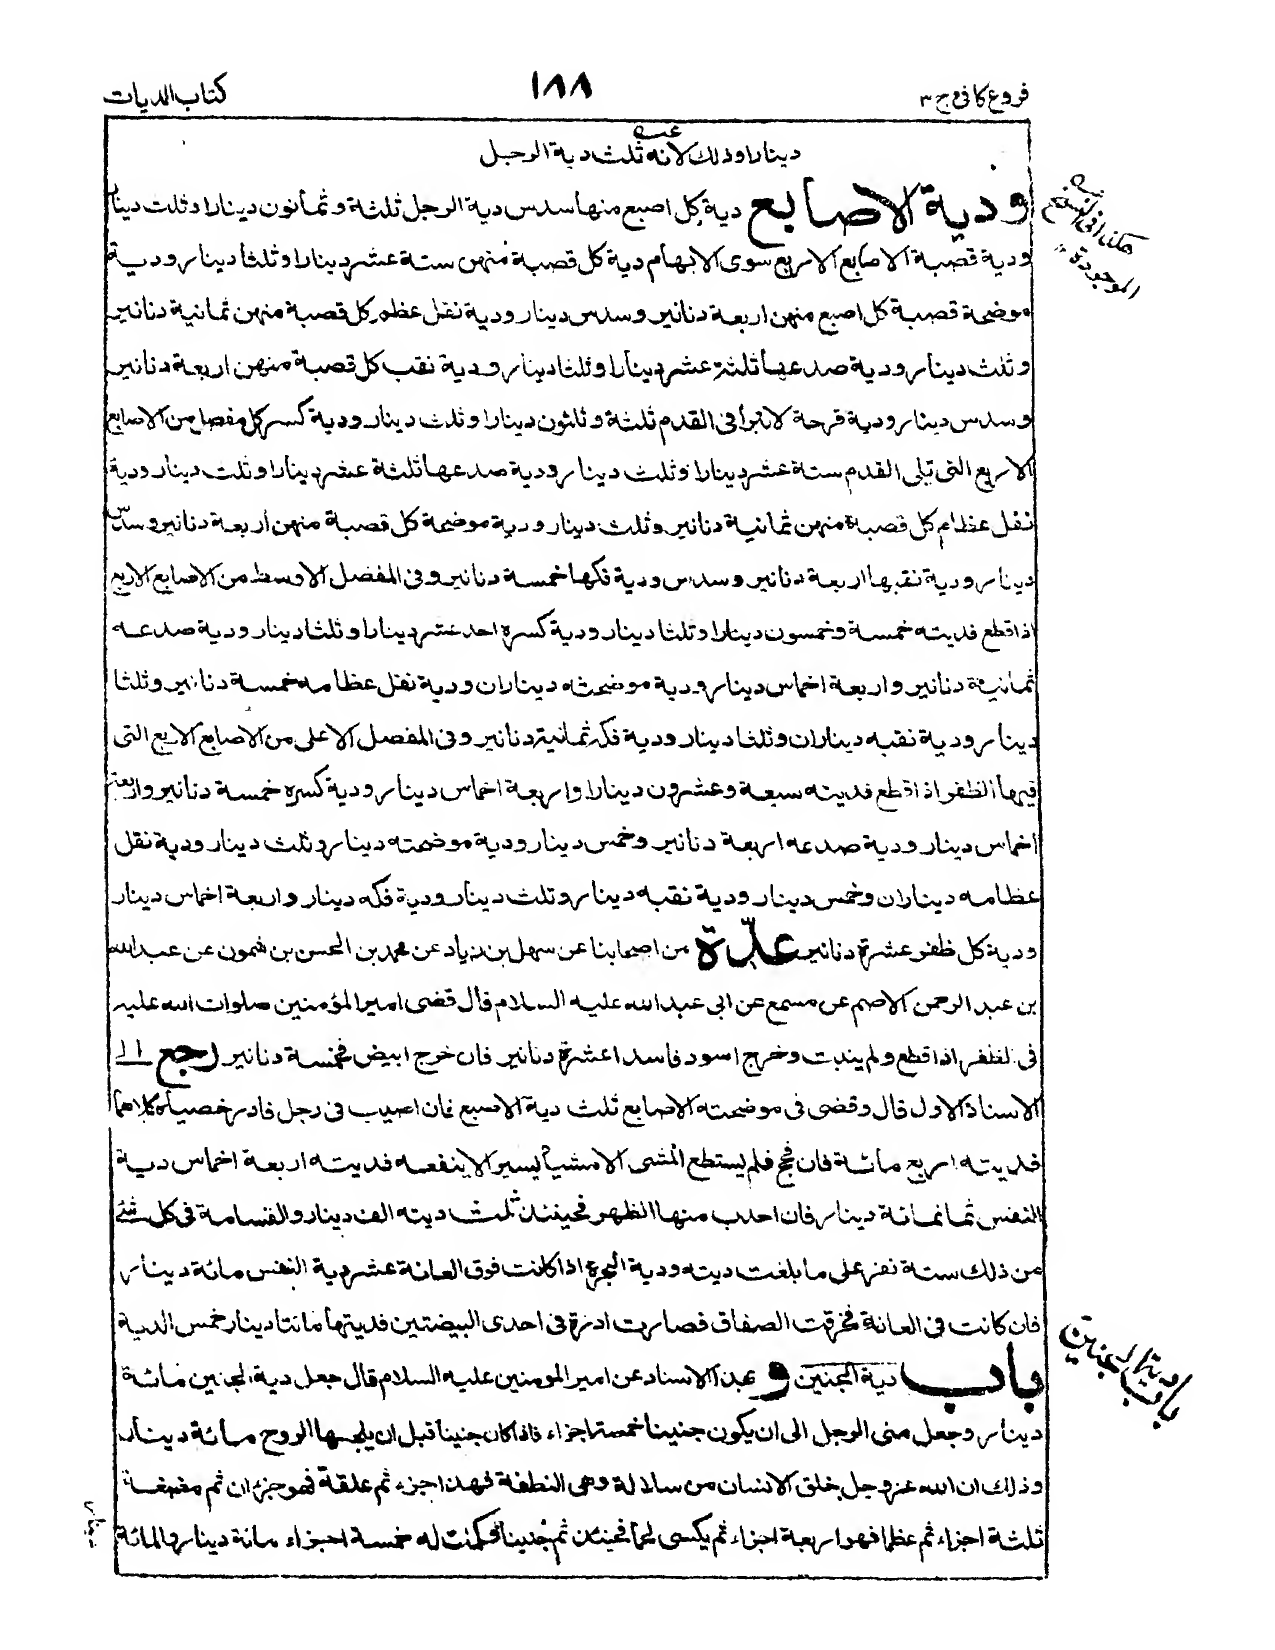 فروع كافى ج ٣
١٨٨
كتاب الديات
دينارا وذلك لانه ثلث دية الرجل
ودية الاصابع دية كل اصبع منها سدس دية الرجل ثلثة وثمانون دينارا وثلث دينار
ودية قصبة الاصابع الاربع سوى الابهام دية كل قصبة منهن ستة عشر دينارا وثلثا دينار ودية
موضحة قصبة كل اصبع منهن اربعة دنانير وسدس دينار ودية نقل عظم كل قصبة منهن ثمانية دنانير
وثلث دينار ودية صدعها ثلثة عشر دينارا وثلثا دينار ودية نقب كل قصبة منهن اربعة دنانير
وسدس دينار ودية قرحة لا تبرأ فى القدم ثلثة وثلثون دينارا وثلث دينار ودية كسر كل مفصل من الاصابع
الاربع التى تلى القدم ستة عشر دينارا وثلث دينار ودية صدعها ثلثة عشر دينارا وثلث دينار ودية
نقل عظام كل قصبة منهن ثمانية دنانير وثلث دينار ودية موضحة كل قصبة منهن اربعة دنانير وسدس
دينار ودية نقبها اربعة دنانير وسدس ودية فكها خمسة دنانير وفى المفصل الاوسط من الاصابع الاربع
اذا قطع فديته خمسة وخمسون دينارا وثلثا دينار ودية كسره احد عشر دينارا وثلثا دينار ودية صدعه
ثمانية دنانير واربعة اخماس دينار ودية موضحته ديناران ودية نقل عظامه خمسة دنانير وثلثا
دينار ودية نقبه ديناران وثلثا دينار ودية فكه ثمانية دنانير وفى المفصل الاعلى من الاصابع الاربع التى
فيها الظفر اذا قطع فديته سبعة وعشرون دينارا واربعة اخماس دينار ودية كسره خمسة دنانير واربعة
اخماس دينار ودية صدعه اربعة دنانير وخمس دينار ودية موضحته دينار وثلث دينار ودية نقل
عظامه ديناران وخمس دينار ودية نقبه دينار وثلث دينار ودية فكه دينار واربعة اخماس دينار
ودية كل ظفر عشرة دنانير عدّة من اصحابنا عن سهل بن زياد عن محمد بن الحسن بن شمون عن عبد الله
بن عبد الرحمن الاصم عن مسمع عن ابى عبد الله عليه السلام قال قضى امير المؤمنين صلوات الله عليه
فى الظفر اذا قطع ولم ينبت وخرج اسود فاسدا عشرة دنانير فان خرج ابيض فخمسة دنانير رجع الى
الاسناد الاول قال وقضى فى موضحته الاصابع ثلث دية الاصبع فان اصيب فى رجل فادر خصياه كلاهما
فديته اربع مائة فان فحج فلم يستطع المشى الا مشيا يسير الا ينفعه فديته اربعة اخماس دية
النفس ثمانمائة دينار فان احدب منها الظهر فحينئذ ثلث ديته الف دينار والقسامة فى كل شئ
من ذلك ستة نفر على ما بلغت ديته ودية البجرة اذا كانت فوق العانة عشر دية النفس مائة دينار
فان كانت فى العانة فخرقت الصفاق فصارت ادرة فى احدى البيضتين فديتها مائتا دينار خمس الدية
باب دية الجنين وبهذ الاسناد عن امير المومنين عليه السلام قال جعل دية الجنين مائة
دينار وجعل منى الرجل الى ان يكون جنينا خمسة اجزاء فاذا كان جنينا قبل ان يلجها الروح مائة دينار
وذلك ان الله عز وجل خلق الانسان من سلالة وهى النطفة فهذا جزء ثم علقة فهو جزءان ثم مضغة
ثلثة اجزاء ثم عظما فهو اربعة اجزاء ثم يكسى لحما فحينئذ ثم جنينا فكملت له خمسة اجزاء مائة دينار والمائة
هكذا فى النسخ
الموجودة
باب دية الجنين
دينار